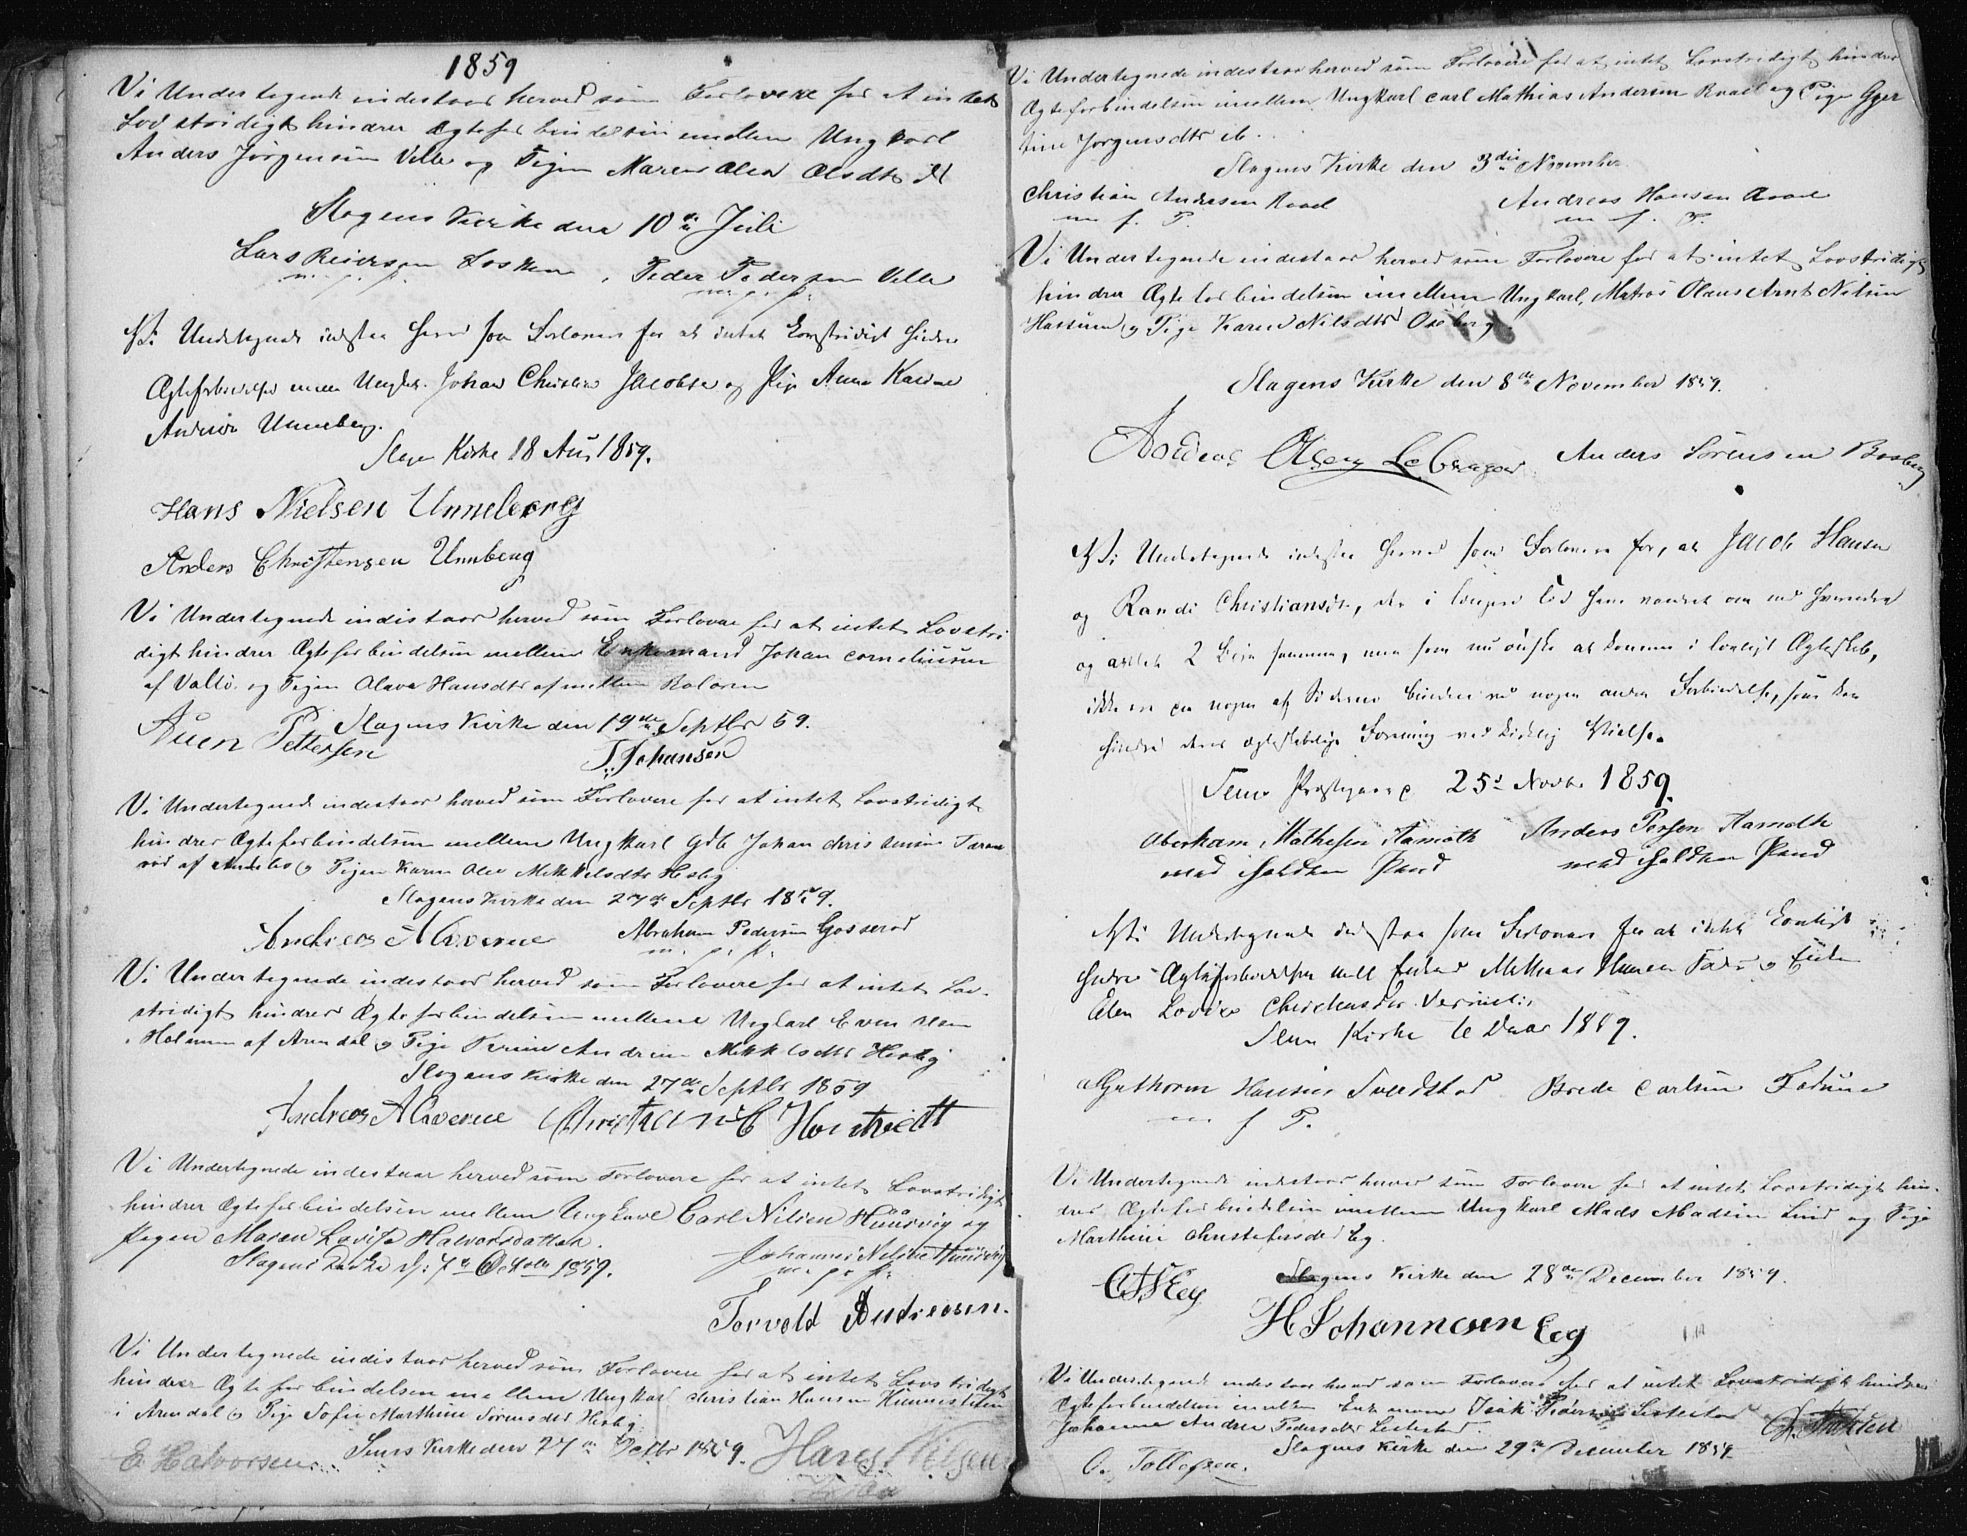 1859
Vi Undertegnede indestaar herved som Forlovere for at intet
Lovstridigt hindrer Ægteforbindelsen mellem Ungkarl
Anders Jörgensen Velle og Pigen Maren Olea Olsdtr
Slagens Kirke den 10de Juli
Lars Reiersen, Peder Pedersen Velle
m. f. P. m. f. P.
Vi Undertegnede indestaa herved som Forlovere for at intet Lovstridigt hindrer
Ægteforbindelse mellem Ungk. Johan Christian Jacobsen og Pige Anne Karine
Andersen Unneberg.
Slagen Kirke 18 Aug 1859.
Hans Nielsen Unneberg
Anders Christensen Unneberg
Vi Undertegnede indestaar herved som Forlovere for at intet Lovstri
digt hindrer Ægteforbindelsen mellem Enkemand Johan Corneliusen
af Vallö og Pigen Olava Hansdtr af mellem Bolæren
Slagens Kirke den 19de Septbr 59.
Auen Pettersen J. Johansen
Vi Undertegnede indestaar herved som Forlovere for at intet Lovstridigt
hindrer Ægteforbindelsen mellem Ungkarl Johan Christensen
af Andebo og Pigen Karen Olea Mikkelsdtr Hesby
Slagens Kirke den 27de Septbr 1859.
Andreas Abraham Pedersen Gosserød
m. f. P.
Vi Undertegnede indestaar herved som Forlovere for at intet Lov-
stridigt hindrer Ægteforbindelsen mellem Ungkarl Even
Holmen af Arendal og Pige Andrine Mikkelsdtr Hesby
Slagens Kirke den 27de Septbr 1859
Andreas Christian C
Vi Undertegnede indestaar herved som Forlovere for at intet Lovstridigt
hindrer Ægteforbindelsen mellem Ungkarl Carl Nilsen Huusvig og
Pigen Maren Lovise Halvorsdatter.
Slagens Kirke d: 7de October 1859. Johannes Nilsen Huusvig
m. f. P.
Torvald Andreasen.
Vi Undertegnede indestaar herved som Forlovere for at intet Lovstridigt
hindrer Ægteforbindelsen mellem Ungkarl Christian Hansen
i Arendal og Pige Sofie Marthine Sörensdtr Hesby
Kirke den 27de 1859.
E Halvorsen Hans Nilsen
Vi Undertegnede indestaar herved som Forlovere for at intet Lovstridigt hindrer
Ægteforbindelsen imellem Ungkarl Carl Mathias Andersen Raael og Pige Gjer
tine Jorgensdtr ib.
Slagens Kirke den 3die November
Christian Andersen Raael Andreas Hansen Raael
m. f. P. m. f. P.
Vi Undertegnede indestaar herved som Forlovere for at intet Lovstridigt
hindrer Ægteforbindelsen imellem Ungkarl, Matros Olaus Arnt Nilsen
Hassum og Pige Karen Nilsdtr Oseberg
Slagens Kirke den 8de November 1859.
Andreas Olsen Anders Sörensen Basberg
Vi Undertegnede indestaa herved som Forlovere for, at Jacob Hansen
og Randi Christiansdtr, der i længere Tid have vandret om med hverandre
og avlet 2 Børn sammen, men som nu önske at komme i lovligt Ægteskab,
ikke ere paa nogen af Siderne bundne ved nogen anden Forbindelse, som kan
hindre deres ægteskabelige Forening ved kirkelig Vielse.
Sems Præstegaard 25d Novbr 1859.
Aberham Mathesen Anders Persen
med holden Pend med holden Pend
Vi Undertegnede indestaa som Forlovere for at intet Lovligt
hindrer Ægteforbindelsen mell Enkem Mathias Hansen og Enke
Elen Lovise Christensdtr
Sem Kirke 1859.
Guthorm Hansen Brede Carlsen
m f P.
Vi Undertegnede indestaar herved som Forlovere for at intet Lovstridigt hin-
drer Ægteforbindelsen imellem Ungkarl Mads Madsen Lind og Pige
Marthine Christofersdtr Eg.
Slagens Kirke den 28de December 1859.
H Johannesen Eeg
Vi Undertegnede indestaar herved som Forlovere for at intet Lovstridigt hindrer
Ægteforbindelsen imellem Enkemand Isak Pedersen
Johanne Andrea Pedersdtr
Slagens Kirke den 29de December 1859
O. Tollefsen.